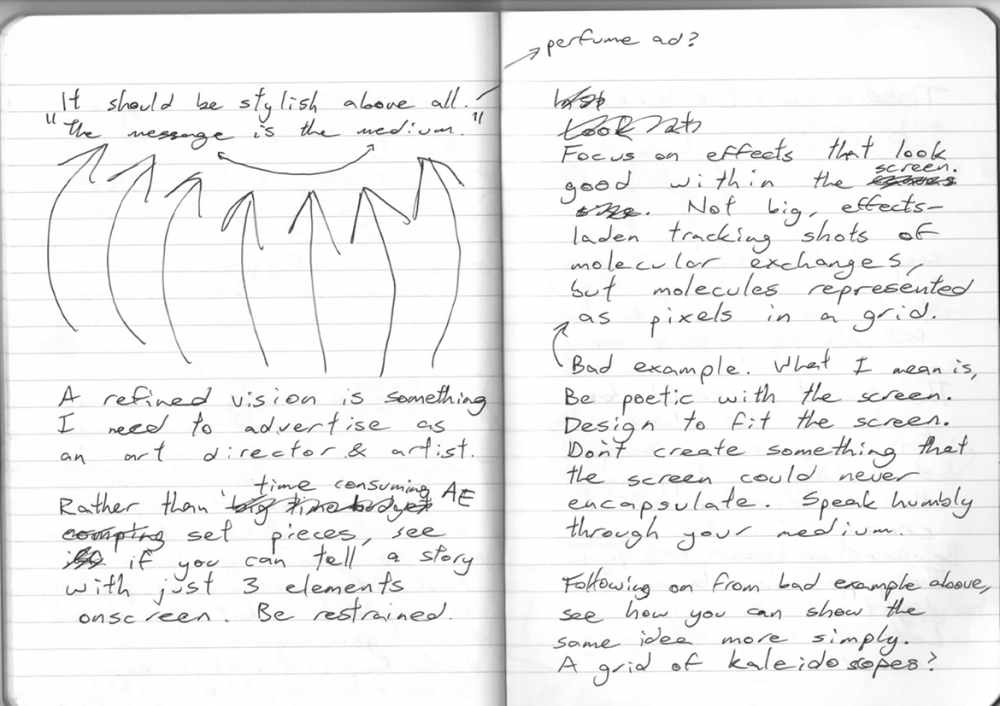 It should be stylish above all.
"The message is the medium."
A refined vision is something
I need to advertise as
an art director & artist.
time consuming
Rather than big time budget AE
comping set pieces, see
if you can tell a story
with just 3 elements
onscreen. Be restrained.
perfume ad?
Look at
Focus on effects that look
screen.
good within the
. Not big, effects-
laden tracking shots of
molecular exchanges,
but molecules represented
as pixels in a grid.
Bad example. What I mean is,
Be poetic with the screen.
Design to fit the screen.
Don't create something that
the screen could never
encapsulate. Speak humbly
through your medium.
Following on from bad example above,
see how you can show the
same idea more simply.
A grid of kaleidoscopes?